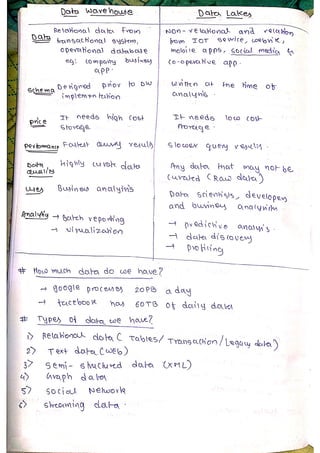 Data Warehouse
Data Lakes
Data
Relational data from transactional system, operational database eg: company business app.
Non-relational and relation from IoT service, website, mobile apps, social media & co-operative app.
Schema
Designed prior to DW implementation
written at the time of analysis
Price
It needs high cost storage
It needs low cost storage.
Performance
Fastest query results
Slower query results.
Data quality
Highly curate data
Any data that may not be curated (Raw data)
Uses
Business analysis
Data scientists, developers and business analysists
Analytis
→ Batch reporting
→ visualization
→ predictive analysis
→ data discovery
→ profiling
# How much data do we have?
→ google processes 20PB a day
→ facebook has 60TB of daily data
# Types of data we have?
1) Relational data (Tables/Transaction/Legacy data)
2) Text data (web)
3) Semi-structured data (XML)
4) Graph data
5) Social Network
6) streaming data.